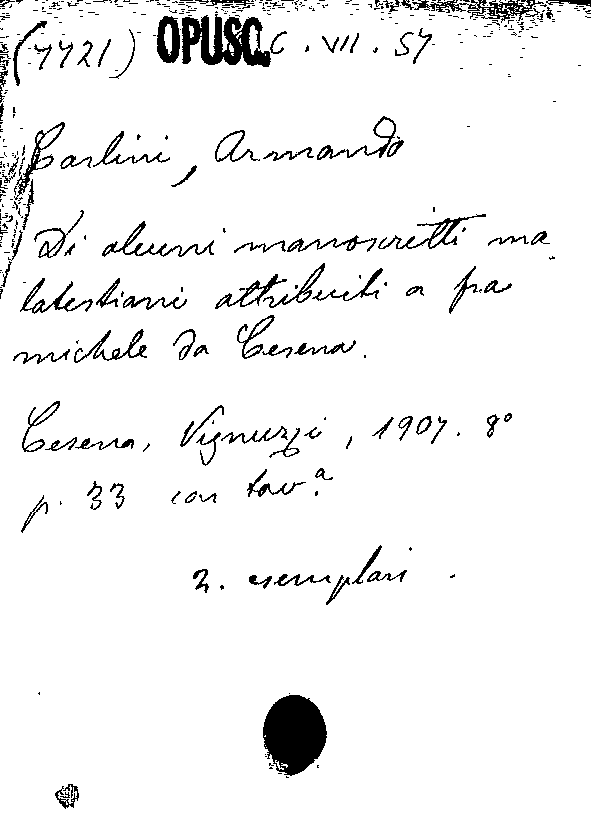 (7721) OPUSC. C. VII. 57
Carlini, Armando
Di alcuni manoscritti ma
latestiani attribuiti a fra
michele da Cesena.
Cesena, Vignuzzi, 1907. 8°
p. 33 con tav.ª
2. esemplari.